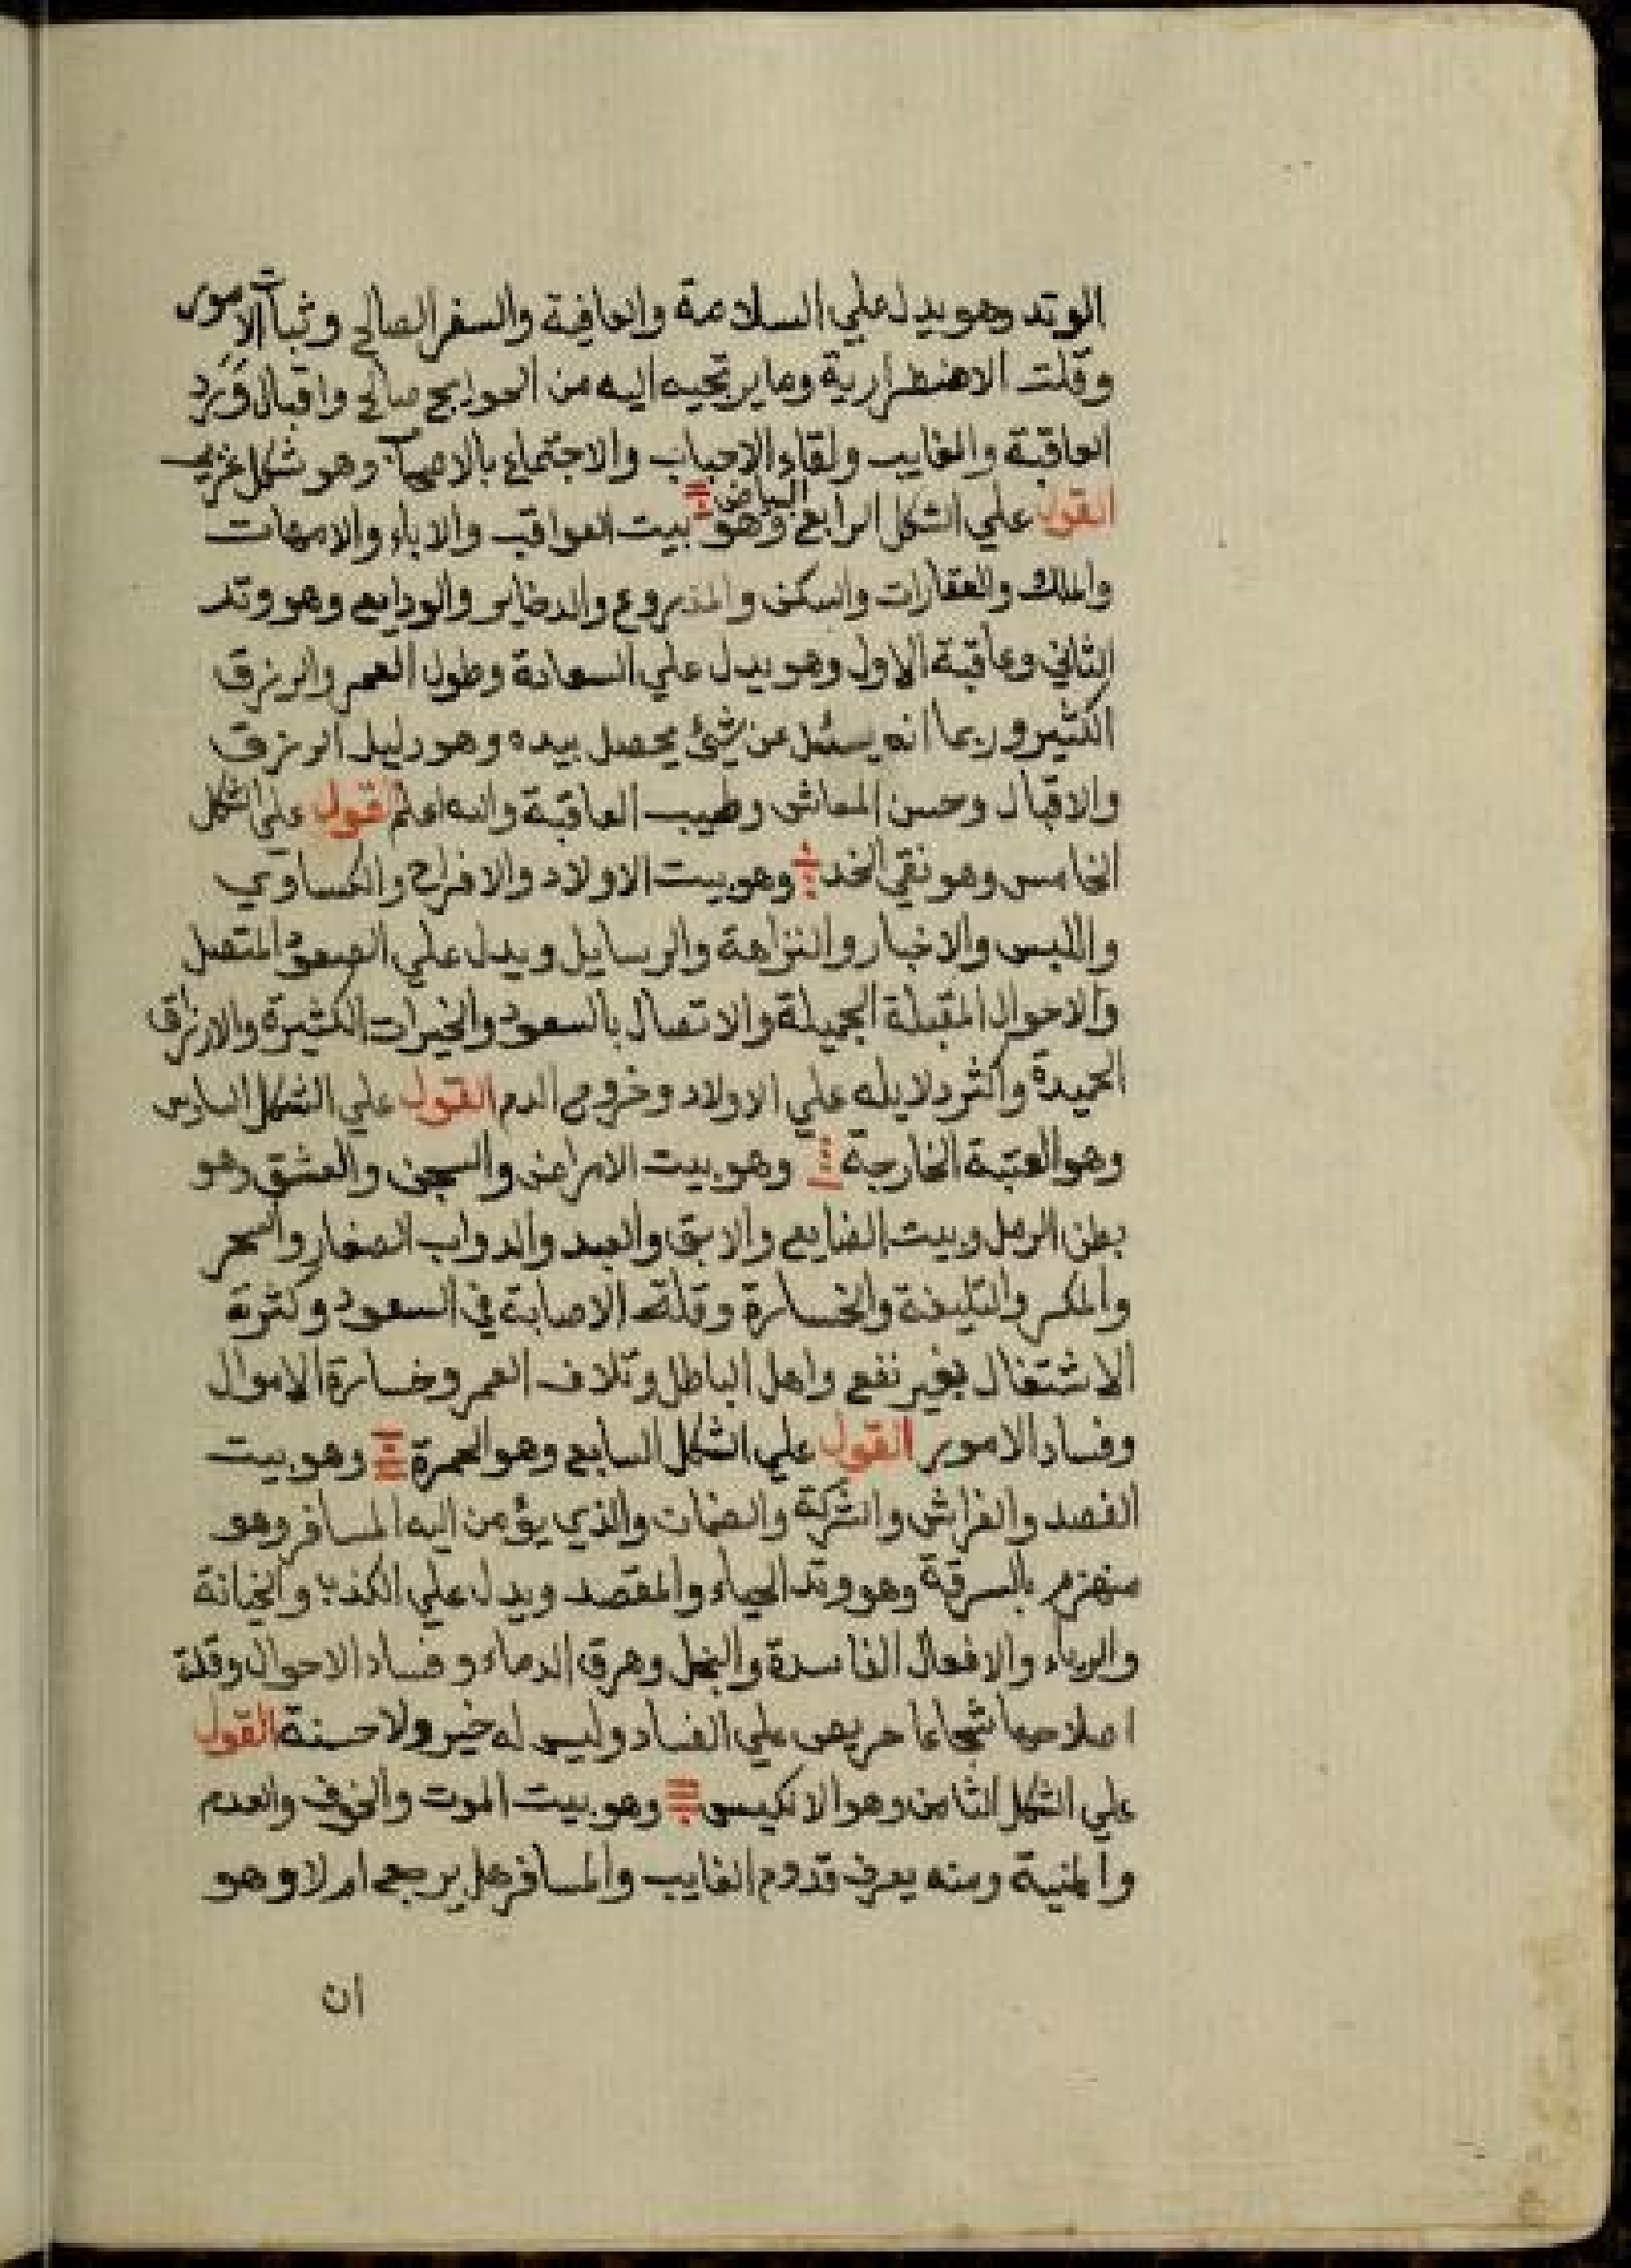 الوتد وهو يدل علي السلامة والعافية والسفر الصالح وثبات الامور
وقلت الاضطرارية وما يرتجيه اليه من الحوايج صالح واقبال
العاقبة والغايب ولقاء الاحباب والاجتماع بالاصحاب وهو شكل غربي
القول علي الشكل الرابع وهو البياض بيت العواقب والاباء والامهات
والملك والعقارات والسكن والمزروع والدفاين والودايع وهو وتد
الثاني وعاقبة الاول وهو يدل علي السعادة وطول العمر والرزق
الكثير وربما انه يسئل عن شئ يحصل بيده وهو دليل الرزق
والاقبال وحسن المعاش وطيب العاقبة والله اعلم القول علي الشكل
الخامس وهو نقي الخد وهو بيت الاولاد والافراح والكساوي
والملبس والاخبار والنزاهة والرسايل ويدل علي الصعود المتصل
والاحوال المقبلة الجميلة والاتصال بالسعود والخيرات الكثيرة والارزاق
الحميدة واكثر دلايله علي الاولاد وخروج الدم القول علي الشكل السادس
وهو العتبة الخارجة وهو بيت الامراض والسجن والعشق وهو
بطن الرمل وبيت الضايع والابق والعبد والدواب الصغار والسحر
والمكر والخسارة وقلة الاصابة في السعود وكثرة
الاشتغال بغير نفع واهل الباطل وتلاف العمر وخسارة الاموال
وفساد الامور القول علي الشكل السابع وهو الحمرة وهو بيت
القصد والفراش والشركة والضمات والذي يؤمن اليه المسافر وهو
منهزم بالسرقة وهو وتد الحياء والمقصد ويدل علي الكذب والخيانة
والرياء والافعال الفاسدة والبخل وهرق الدماء وفساد الاحوال وقلة
اصلاحها شجاعا حريص علي الفساد وليس له خير ولا حسنة القول
علي الشكل الثامن وهو الانكيس وهو بيت الموت والخوف والعدم
والمنية ومنه يعرف قدوم الغايب والمسافر هل يرجع ام لا وهو
ان